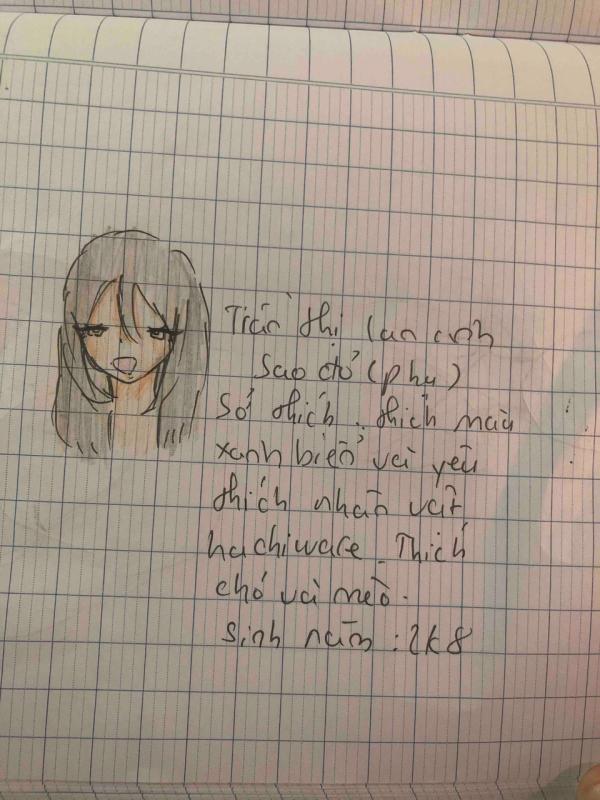 Trần thị lan anh
Sao đỏ (phụ)
Sở thích : thích màu
xanh biển và yêu
thích nhân vật
hachiware. Thích
chó và mèo.
Sinh năm : 2k8